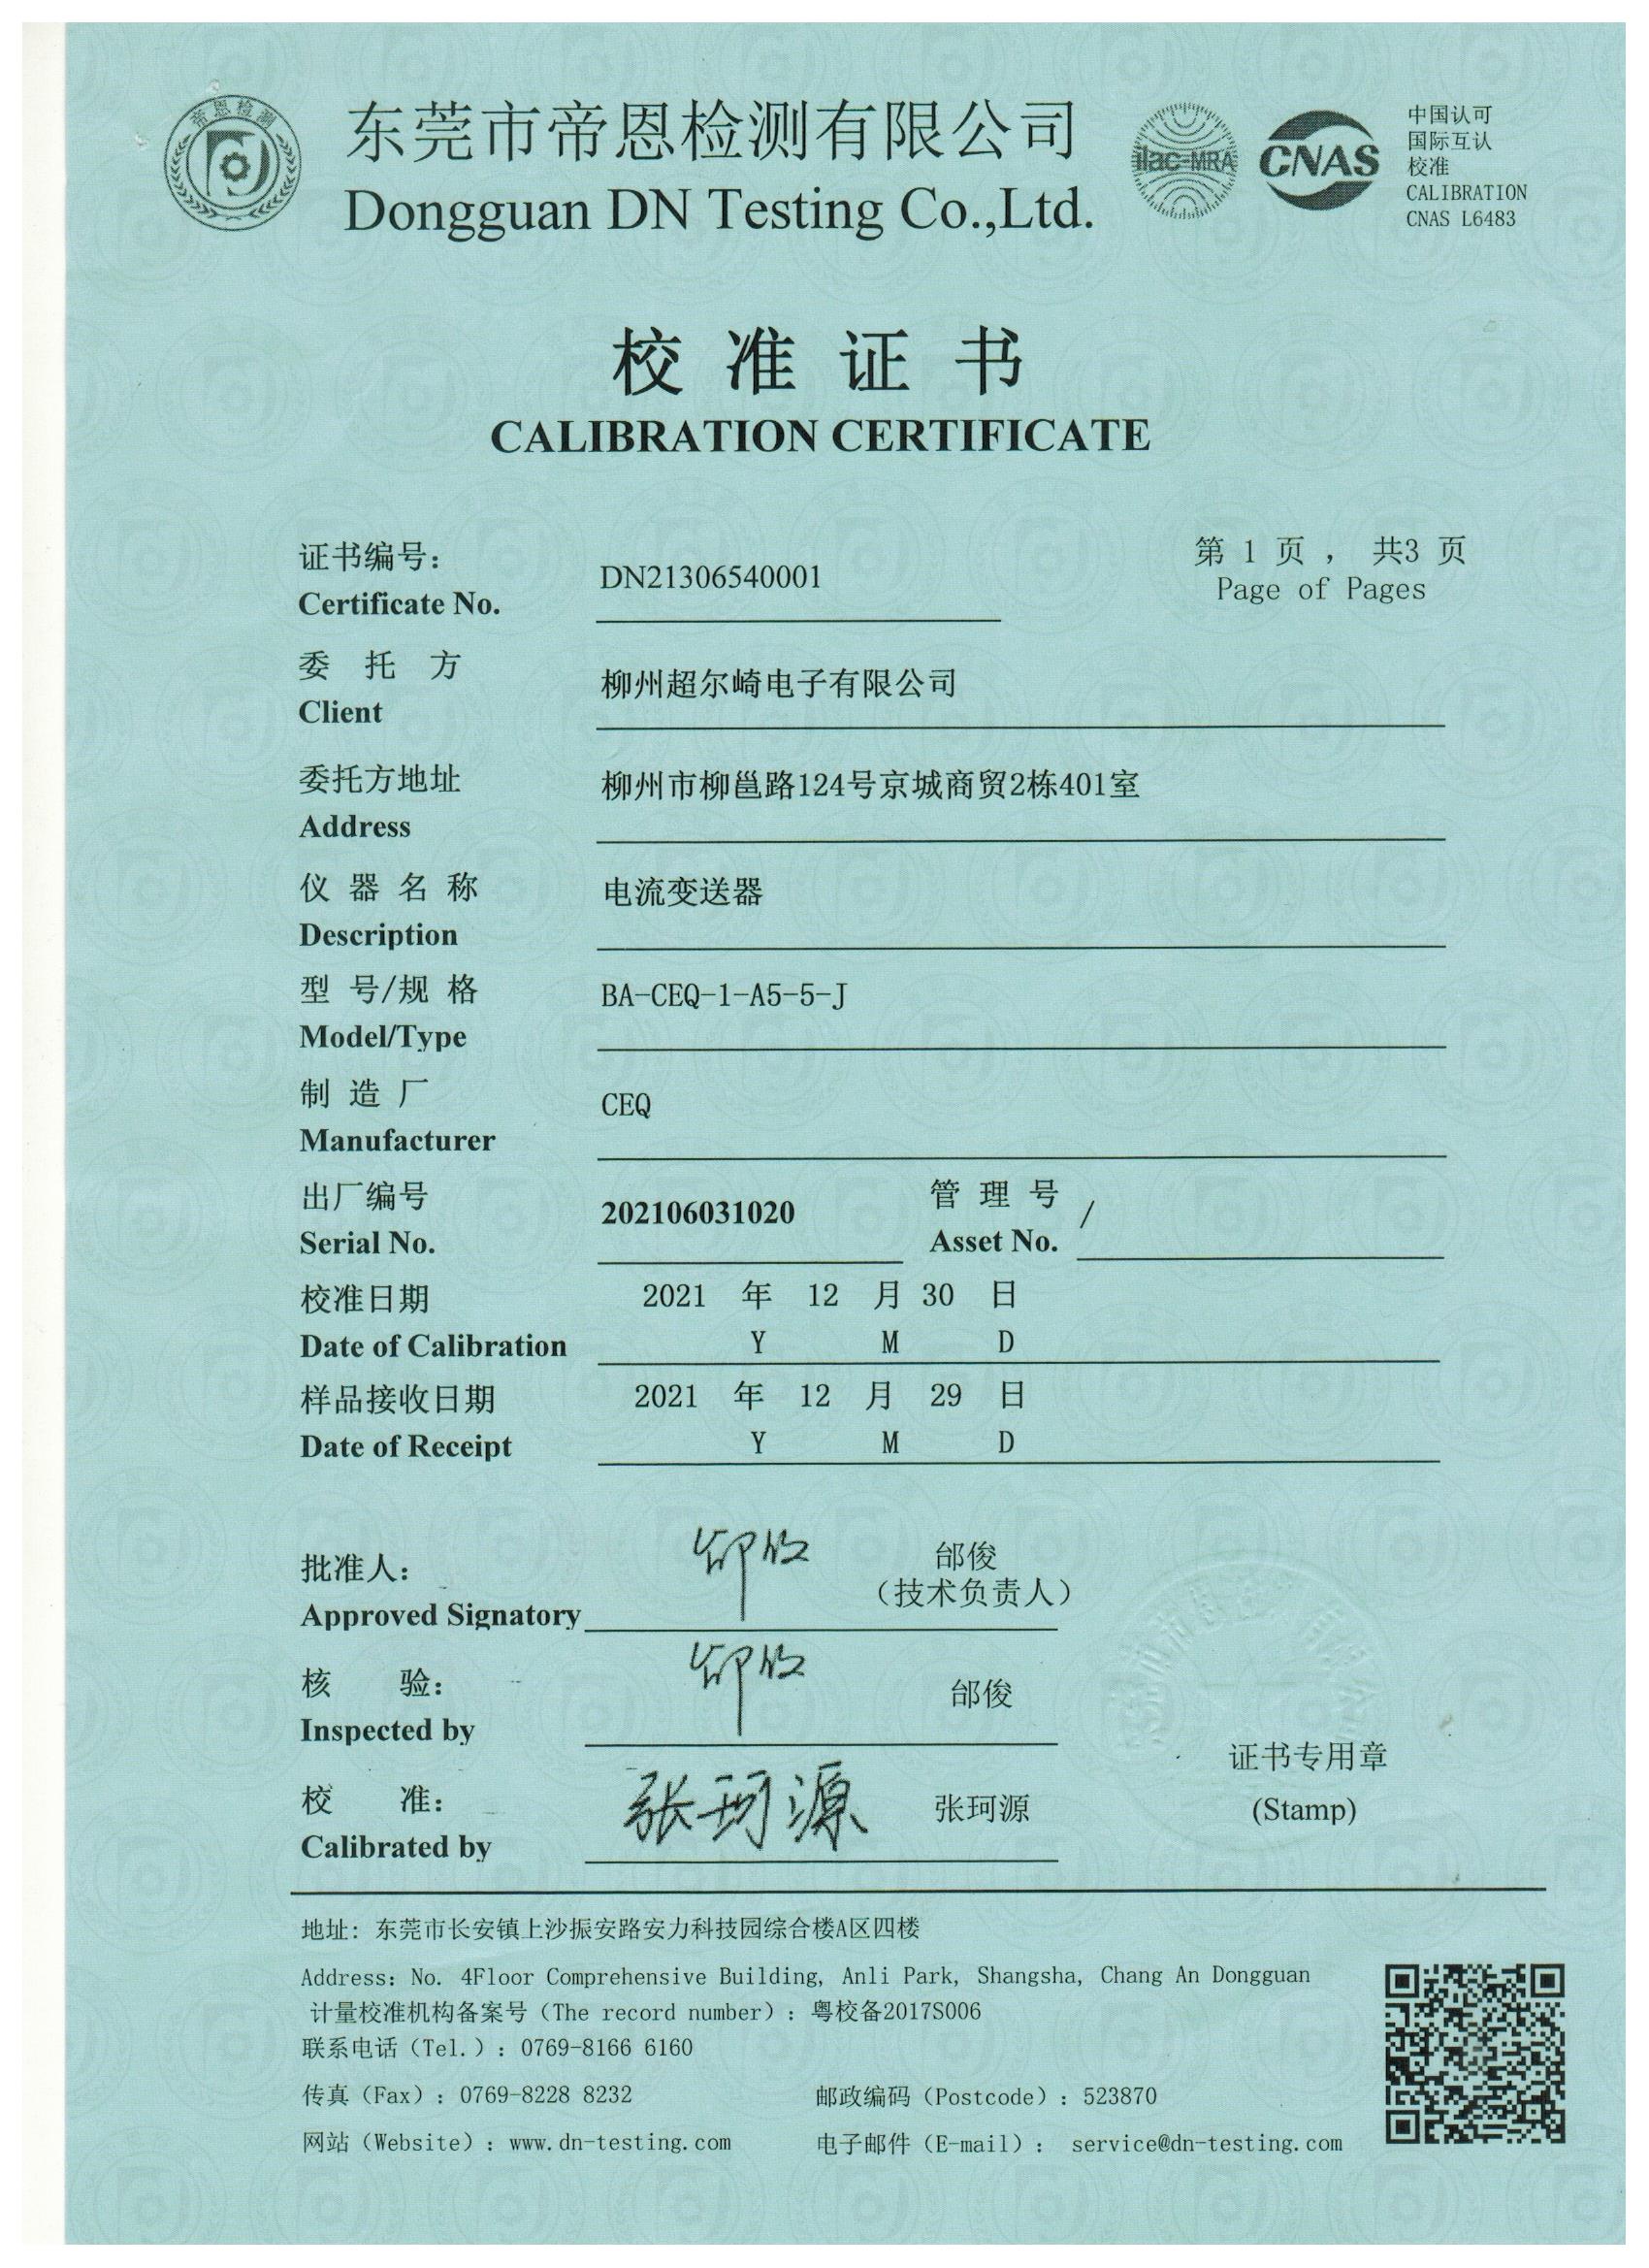 帝恩检测
东莞市帝恩检测有限公司
Dongguan DN Testing Co.,Ltd.
ilac-MRA
CNAS
中国认可
国际互认
校准
CALIBRATION
CNAS L6483
校准证书
CALIBRATION CERTIFICATE
证书编号：
Certificate No.
DN21306540001
第 1 页， 共3 页
Page of Pages
委托方
Client
柳州超尔崎电子有限公司
委托方地址
Address
柳州市柳邕路124号京城商贸2栋401室
仪器名称
Description
电流变送器
型号/规格
Model/Type
BA-CEQ-1-A5-5-J
制造厂
Manufacturer
CEQ
出厂编号
Serial No.
202106031020
管理号
Asset No.
/
校准日期
Date of Calibration
2021 年 12 月 30 日
Y M D
样品接收日期
Date of Receipt
2021 年 12 月 29 日
Y M D
批准人：
Approved Signatory
邰俊
（技术负责人）
核验：
Inspected by
邰俊
校准：
Calibrated by
张珂源
张珂源
证书专用章
(Stamp)
地址: 东莞市长安镇上沙振安路安力科技园综合楼A区四楼
Address: No. 4Floor Comprehensive Building, Anli Park, Shangsha, Chang An Dongguan
计量校准机构备案号（The record number）：粤校备2017S006
联系电话（Tel.）：0769-8166 6160
传真（Fax）：0769-8228 8232
邮政编码（Postcode）：523870
网站（Website）：www.dn-testing.com
电子邮件（E-mail）： service@dn-testing.com